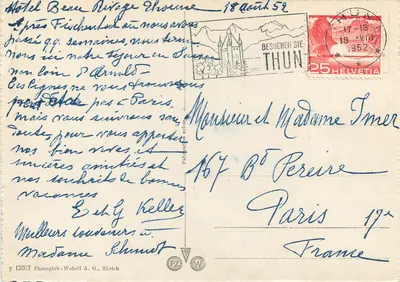 Hotel Beau Rivage Thoune 18 août 52
Après Finhaut où nous avons
passé 10 semaines, nous terminons
ici notre séjour en Suisse
non loin d'Arnold.
Ces lignes vous trouveront
peut-être pas à Paris,
mais vous suivrons sans
doute pour vous apporter
nos bien vives et
sincères amitiés et
nos souhaits de bonnes
vacances
E et G Keller
Meilleurs souvenirs à
Madame Schmidt
y 13057 Photoglob-Wehrli A. G., Zürich
PZ W
BESUCHEN SIE
THUN
THUN
17-18
18.VIII
1952
25 HELVETIA
Monsieur et Madame Imer
167 Bd Pereire
Paris 17e
France